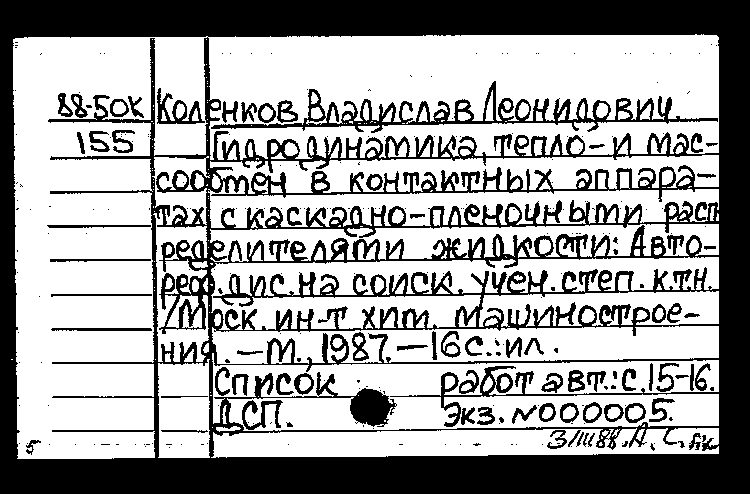 88-50К Коленков, Владислав Леонидович.
155 Гидродинамика, тепло- и мас-
сообмен в контактных аппара-
тах с каскадно-пленочными расп
ределителями жидкости: Авто-
реф. дис. на соиск. учен. степ. к.т.н.
/Моск. ин-т хим. машинострое-
ния. — М., 1987. — 16 с.: ил.
Список работ авт.: с. 15-16.
ДСП. Экз. №000005.
5 3/III 88. А. С.